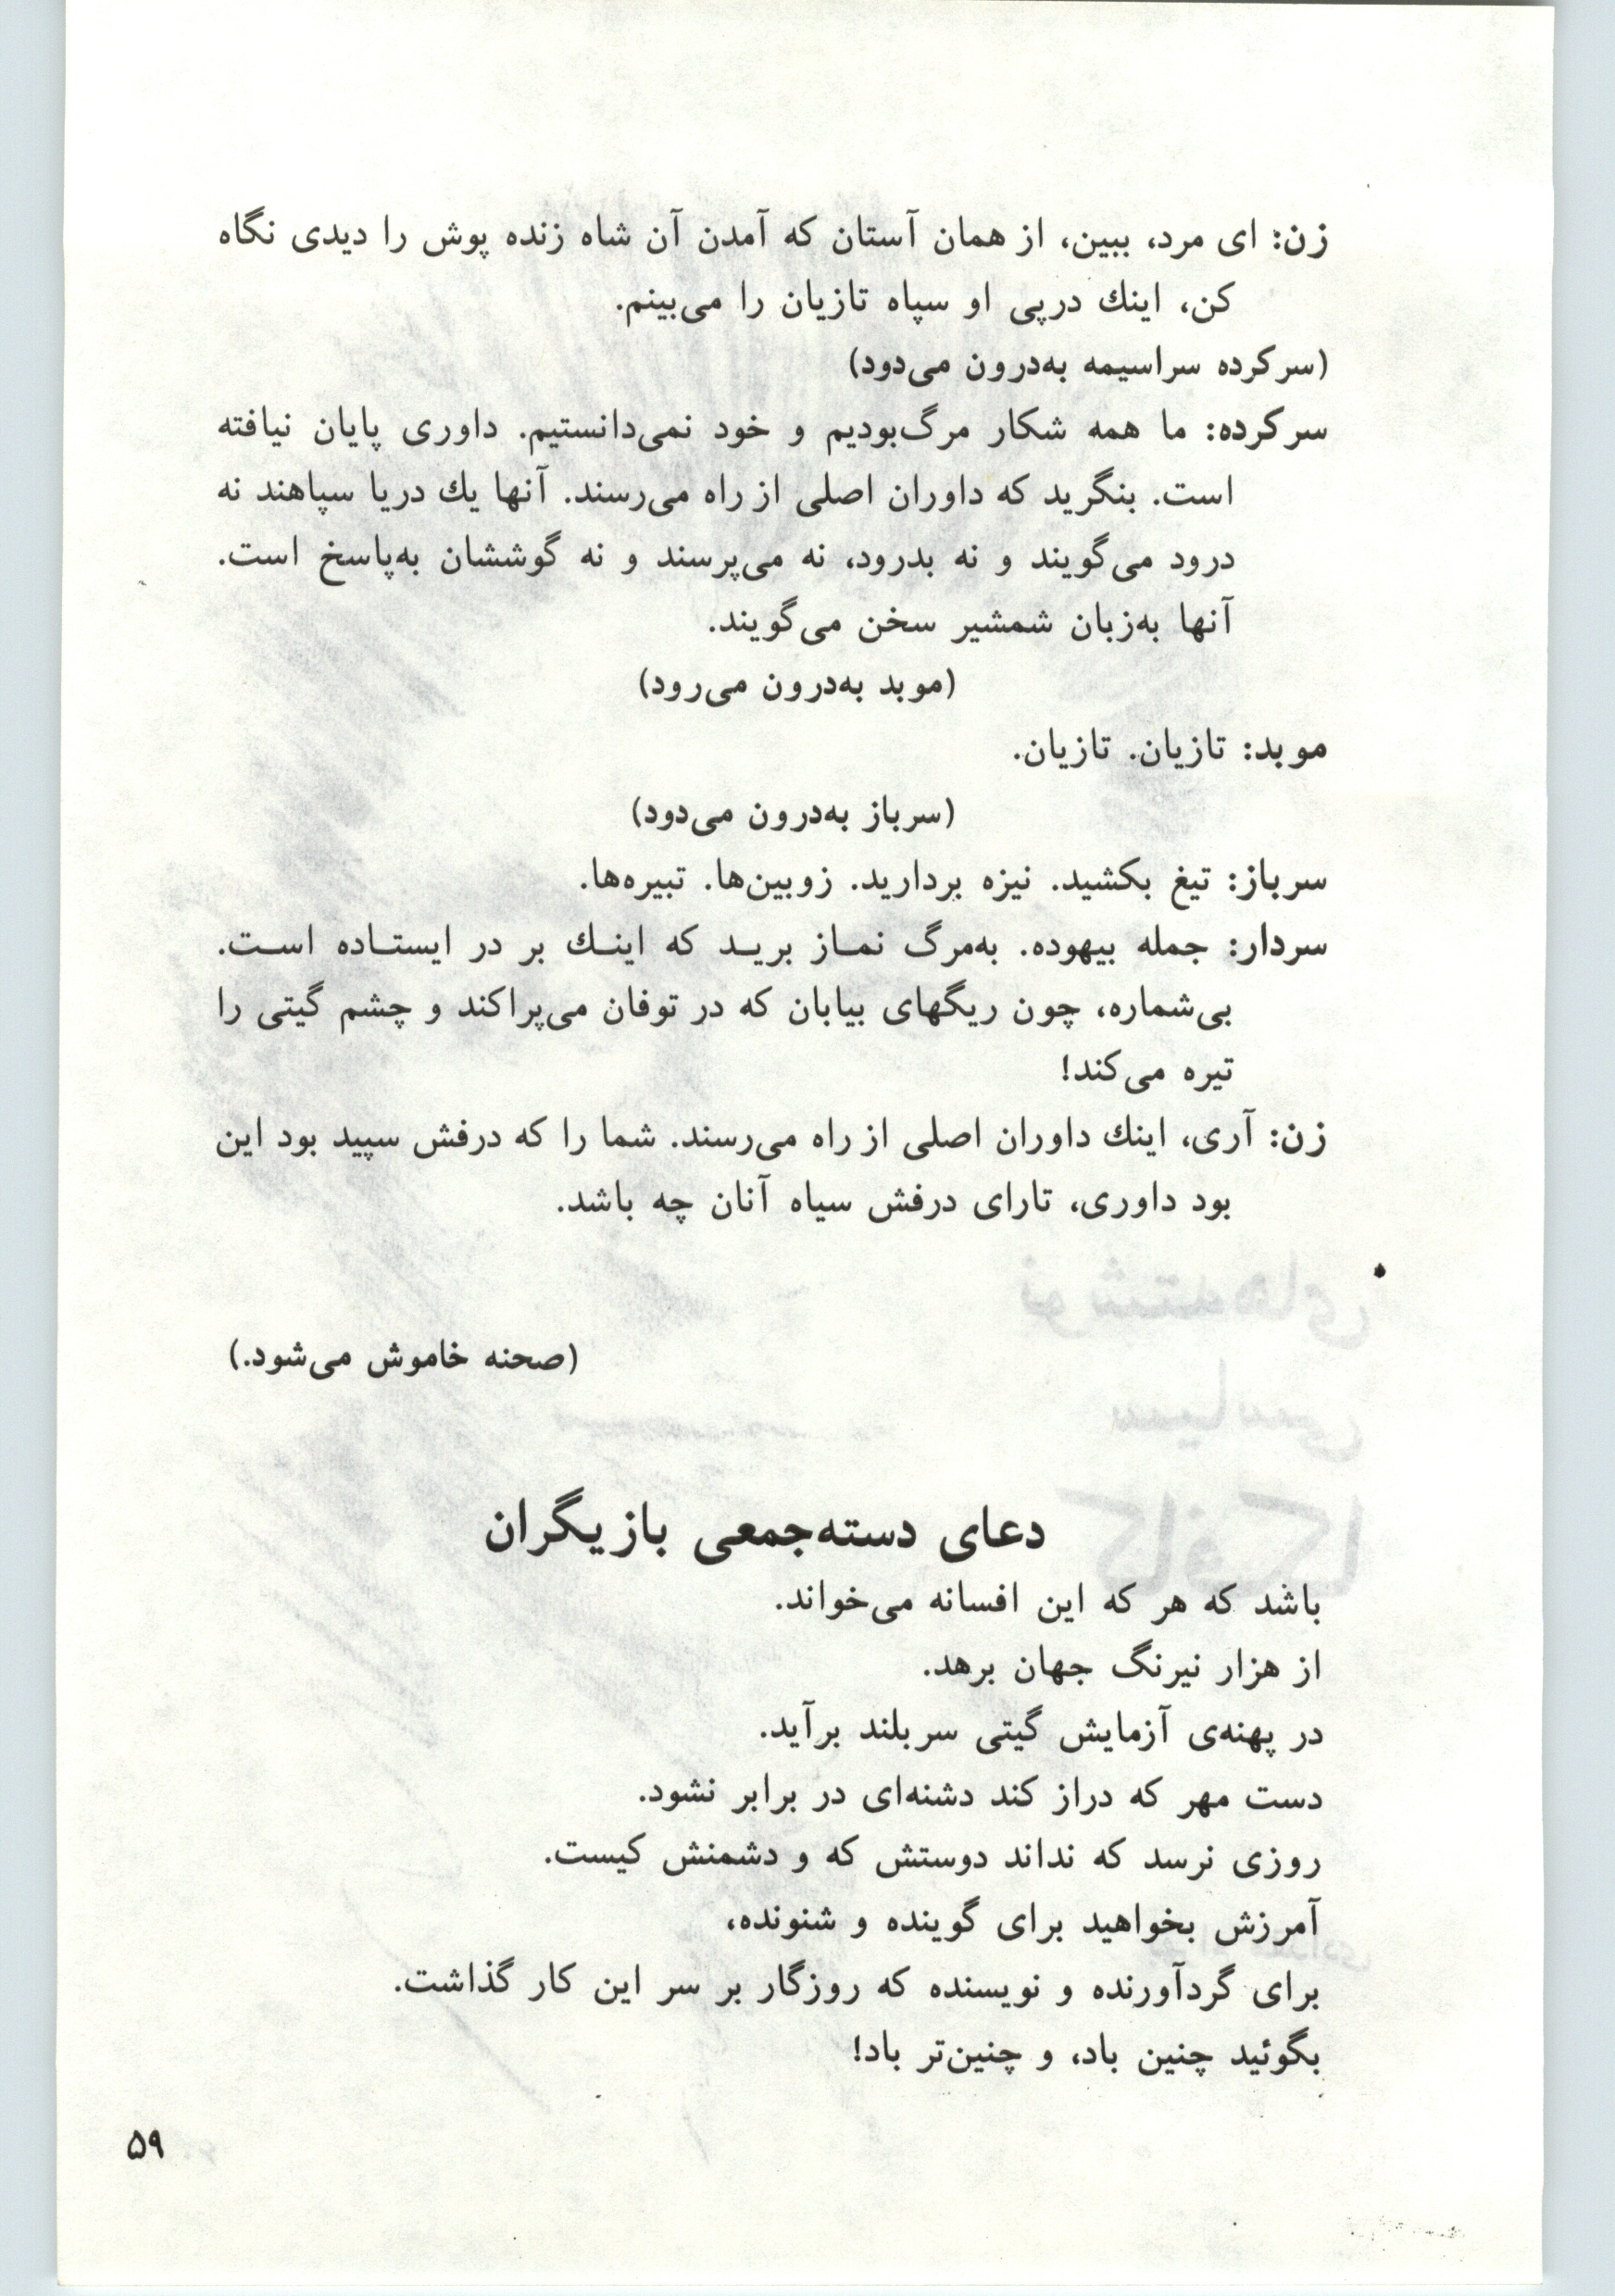 زن: ای مرد، ببین، از همان آستان که آمدن آن شاه زنده پوش را دیدی نگاه
کن، اینك درپی او سپاه تازیان را می‌بینم.
(سرکرده سراسیمه به‌درون می‌دود)
سرکرده: ما همه شکار مرگ‌بودیم و خود نمی‌دانستیم. داوری پایان نیافته
است. بنگرید که داوران اصلی از راه می‌رسند. آنها یك دریا سپاهند نه
درود می‌گویند و نه بدرود، نه می‌پرسند و نه گوششان به‌پاسخ است.
آنها به‌زبان شمشیر سخن می‌گویند.
(موبد به‌درون می‌رود)
موبد: تازیان. تازیان.
(سرباز به‌درون می‌دود)
سرباز: تیغ بکشید. نیزه بردارید. زوبین‌ها. تبیره‌ها.
سردار: جمله بیهوده. به‌مرگ نماز برید که اینك بر در ایستاده است.
بی‌شماره، چون ریگهای بیابان که در توفان می‌پراکند و چشم گیتی را
تیره می‌کند!
زن: آری، اینك داوران اصلی از راه می‌رسند. شما را که درفش سپید بود این
بود داوری، تارای درفش سیاه آنان چه باشد.
(صحنه خاموش می‌شود.)
دعای دسته‌جمعی بازیگران
باشد که هر که این افسانه می‌خواند.
از هزار نیرنگ جهان برهد.
در پهنه‌ی آزمایش گیتی سربلند برآید.
دست مهر که دراز کند دشنه‌ای در برابر نشود.
روزی نرسد که نداند دوستش که و دشمنش کیست.
آمرزش بخواهید برای گوینده و شنونده،
برای گردآورنده و نویسنده که روزگار بر سر این کار گذاشت.
بگوئید چنین باد، و چنین‌تر باد!
۵۹